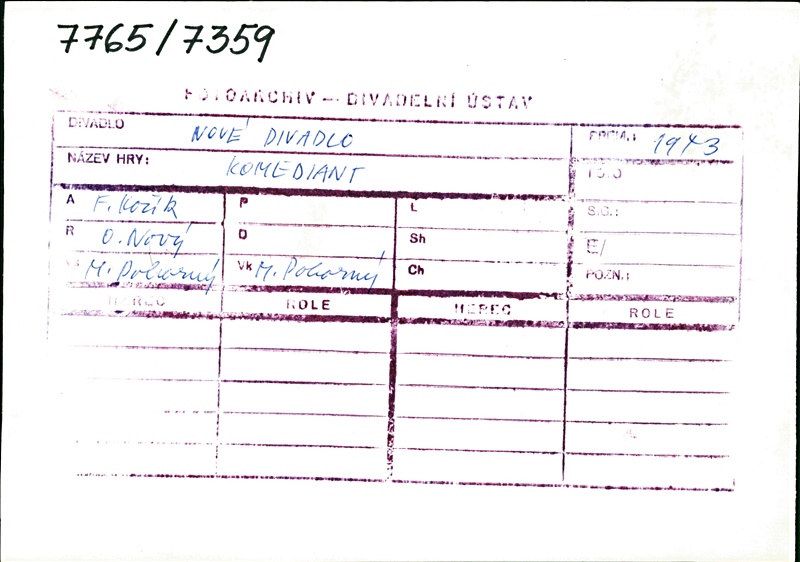 7765/7359
FOTOARCHIV – DIVADELNÍ ÚSTAV
DIVADLO NOVÉ DIVADLO PREM.: 1943
NÁZEV HRY: KOMEDIANT
A F. Kožík P L S.G.:
R O. Nový D Sh E/
M. Pokorný Vk M. Pokorný Ch POZN.:
HEREC ROLE HEREC ROLE